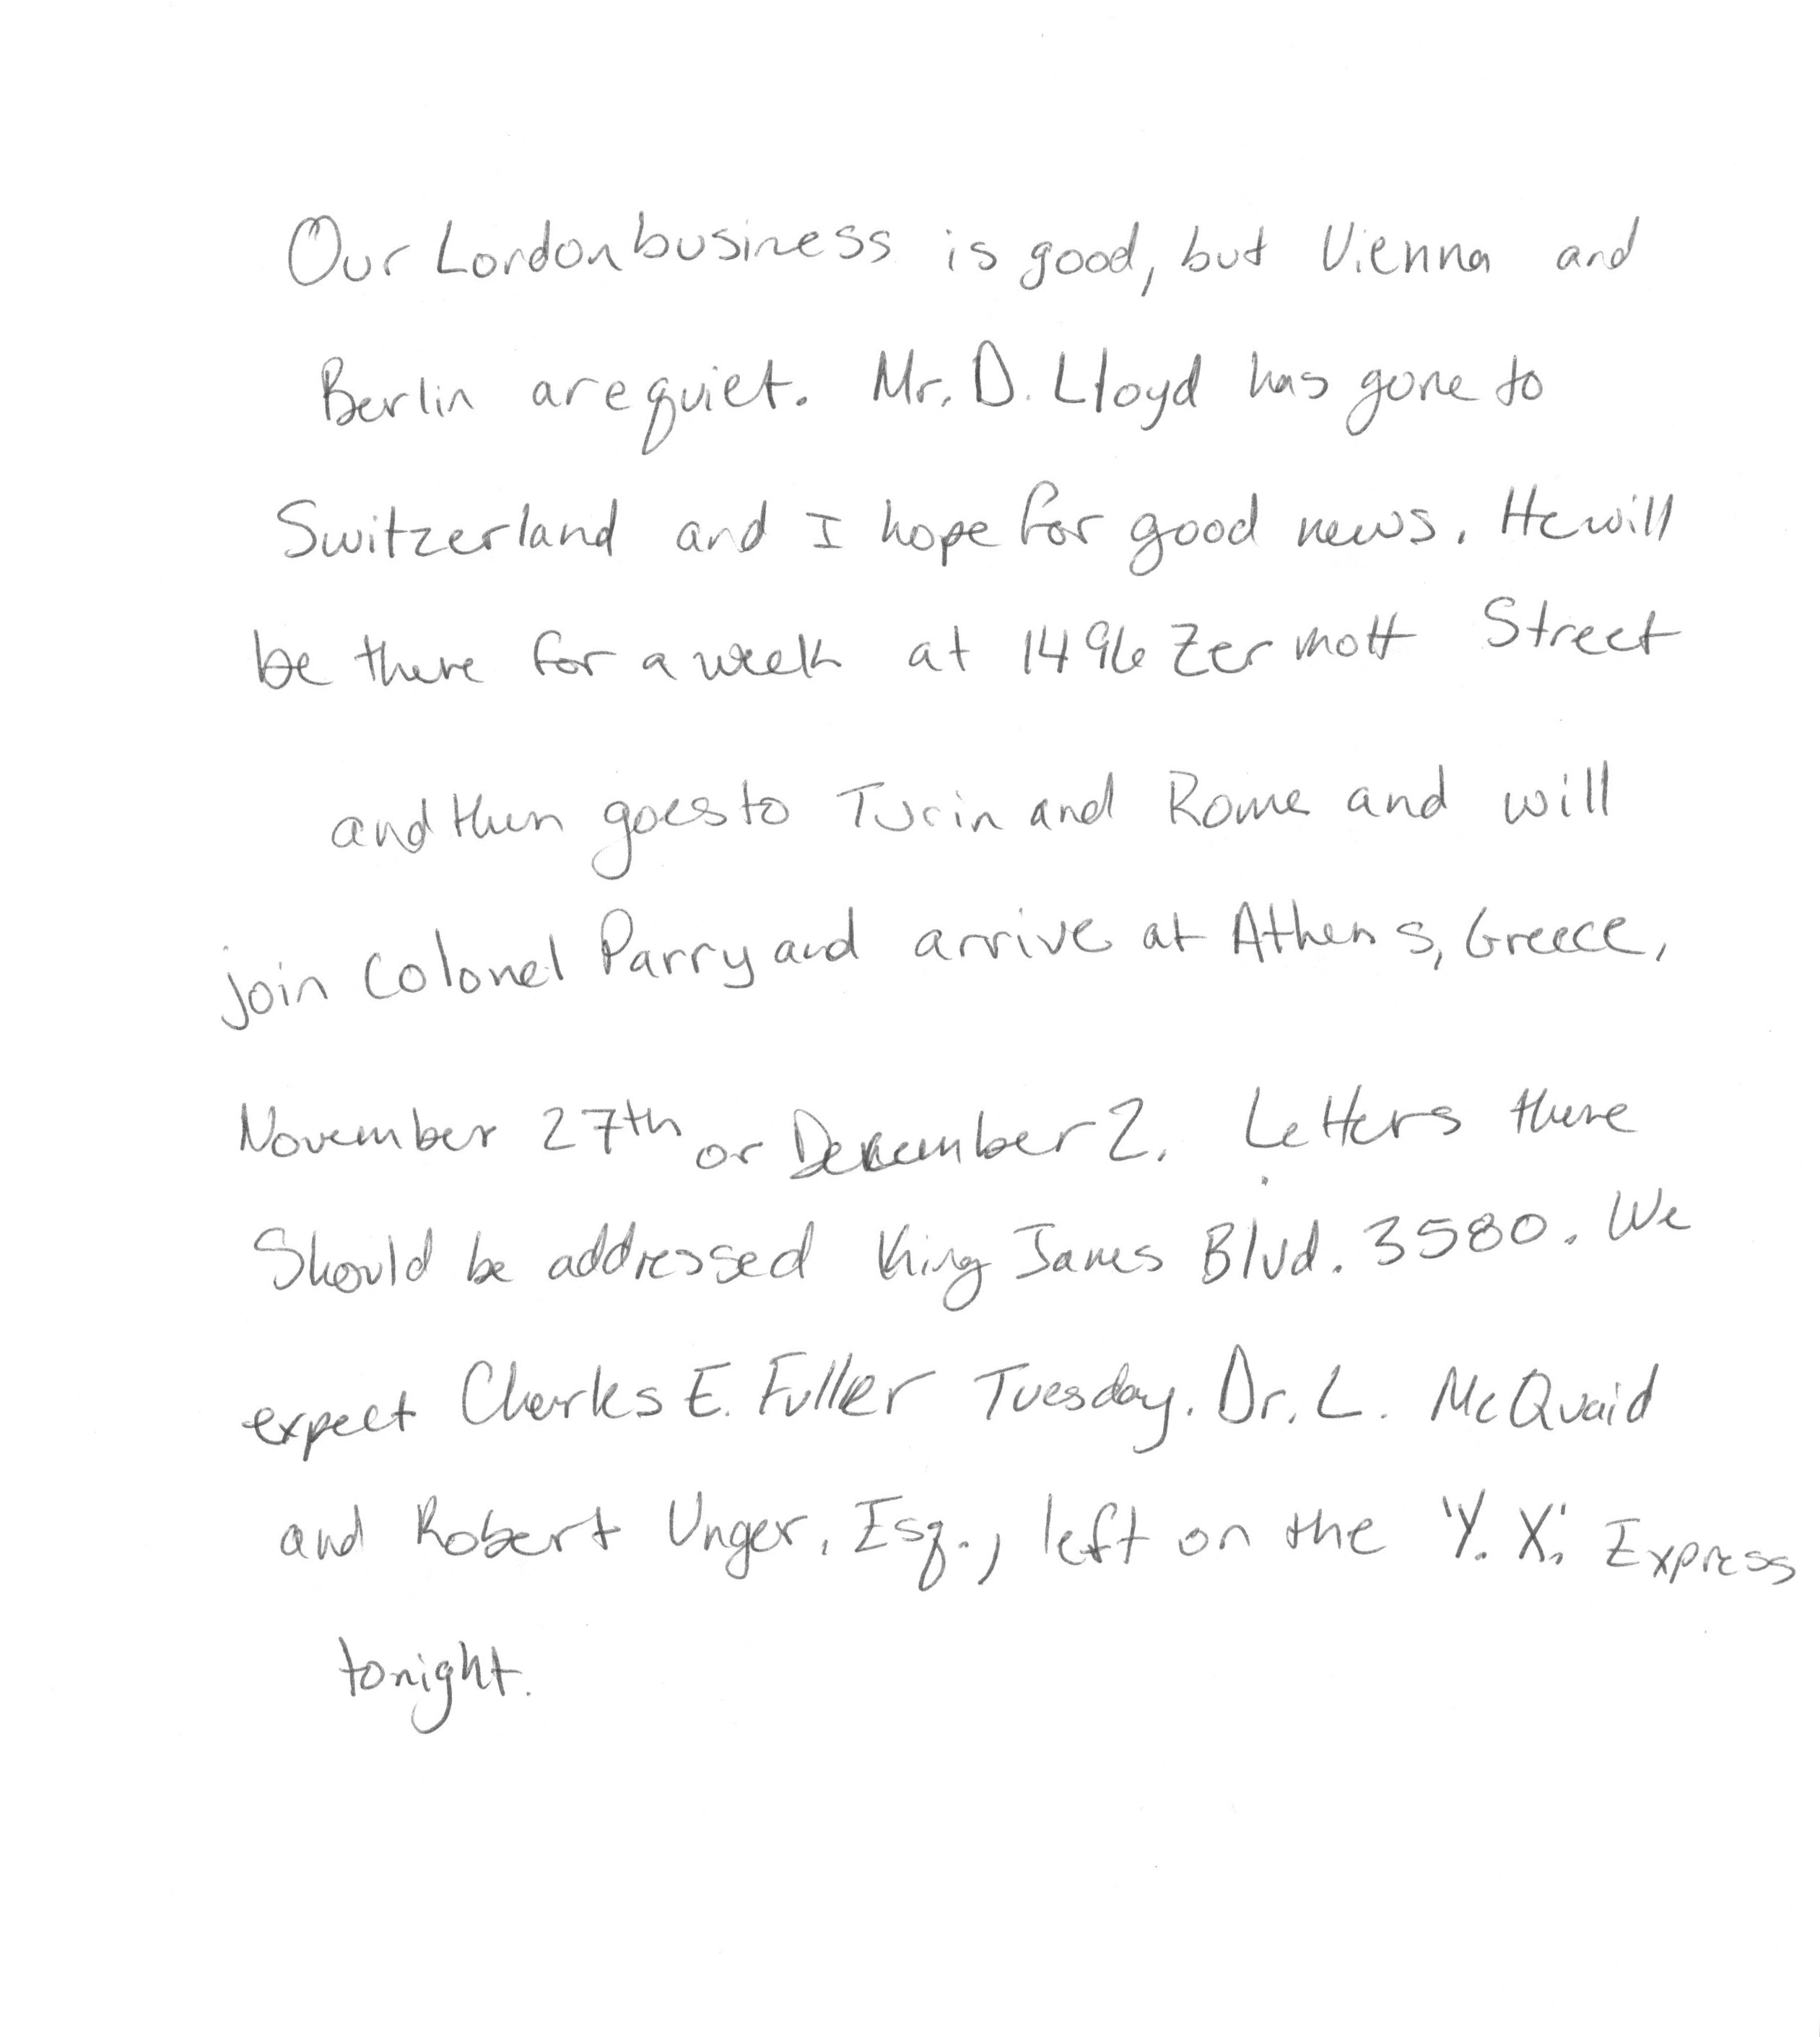 Our London business is good, but Vienna and
Berlin are quiet. Mr. D. Lloyd has gone to
Switzerland and I hope for good news. He will
be there for a week at 1496 Zermott Street
and then goes to Turin and Rome and will
join Colonel Parry and arrive at Athens, Greece,
November 27th or December 2. Letters there
Should be addressed King James Blvd. 3580. We
expect Charles E. Fuller Tuesday. Dr. L. McQuaid
and Robert Unger, Esq., left on the 'Y. X.' Express
tonight.